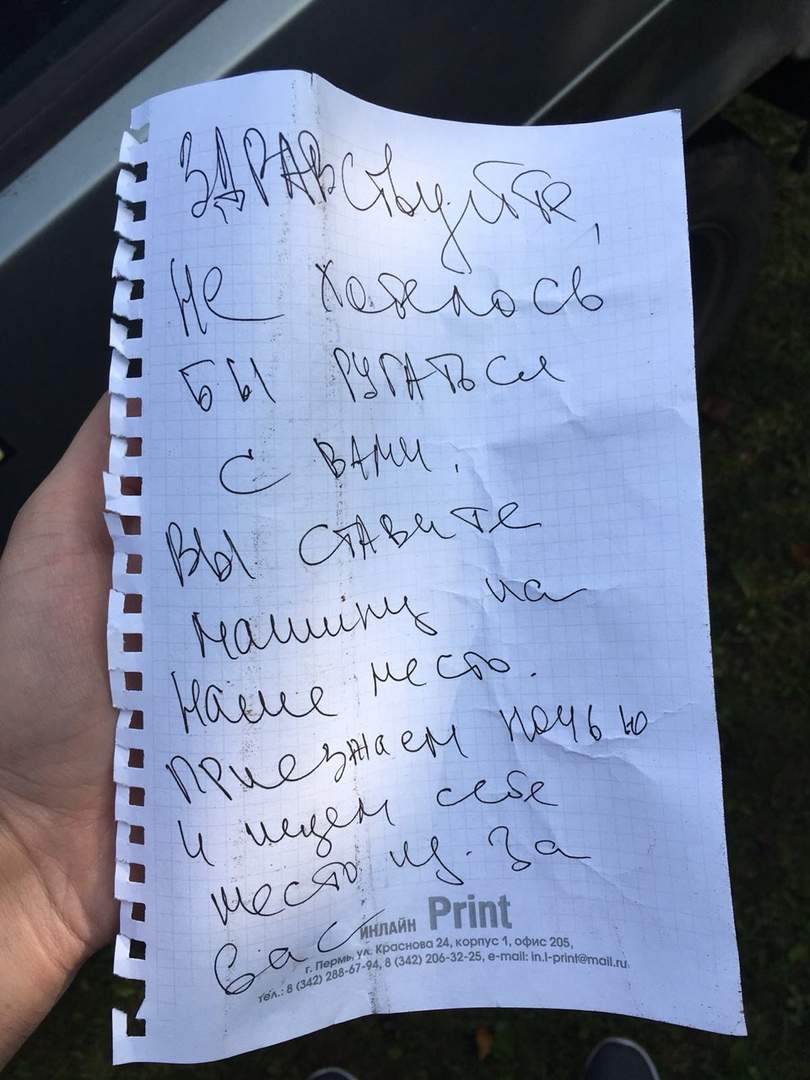 ЗДРАВствуйте,
Не хотелось
БЫ РУГАТЬСя
с ВАМИ.
ВЫ СТАВите
машину на
Наше место.
ПРиезжаем ночью
и ищем себе
место из-за
Вас
ИНЛАЙН Print
г. Пермь, ул. Краснова 24, корпус 1, офис 205,
тел.: 8 (342) 288-67-94, 8 (342) 206-32-25, e-mail: in.l-print@mail.ru